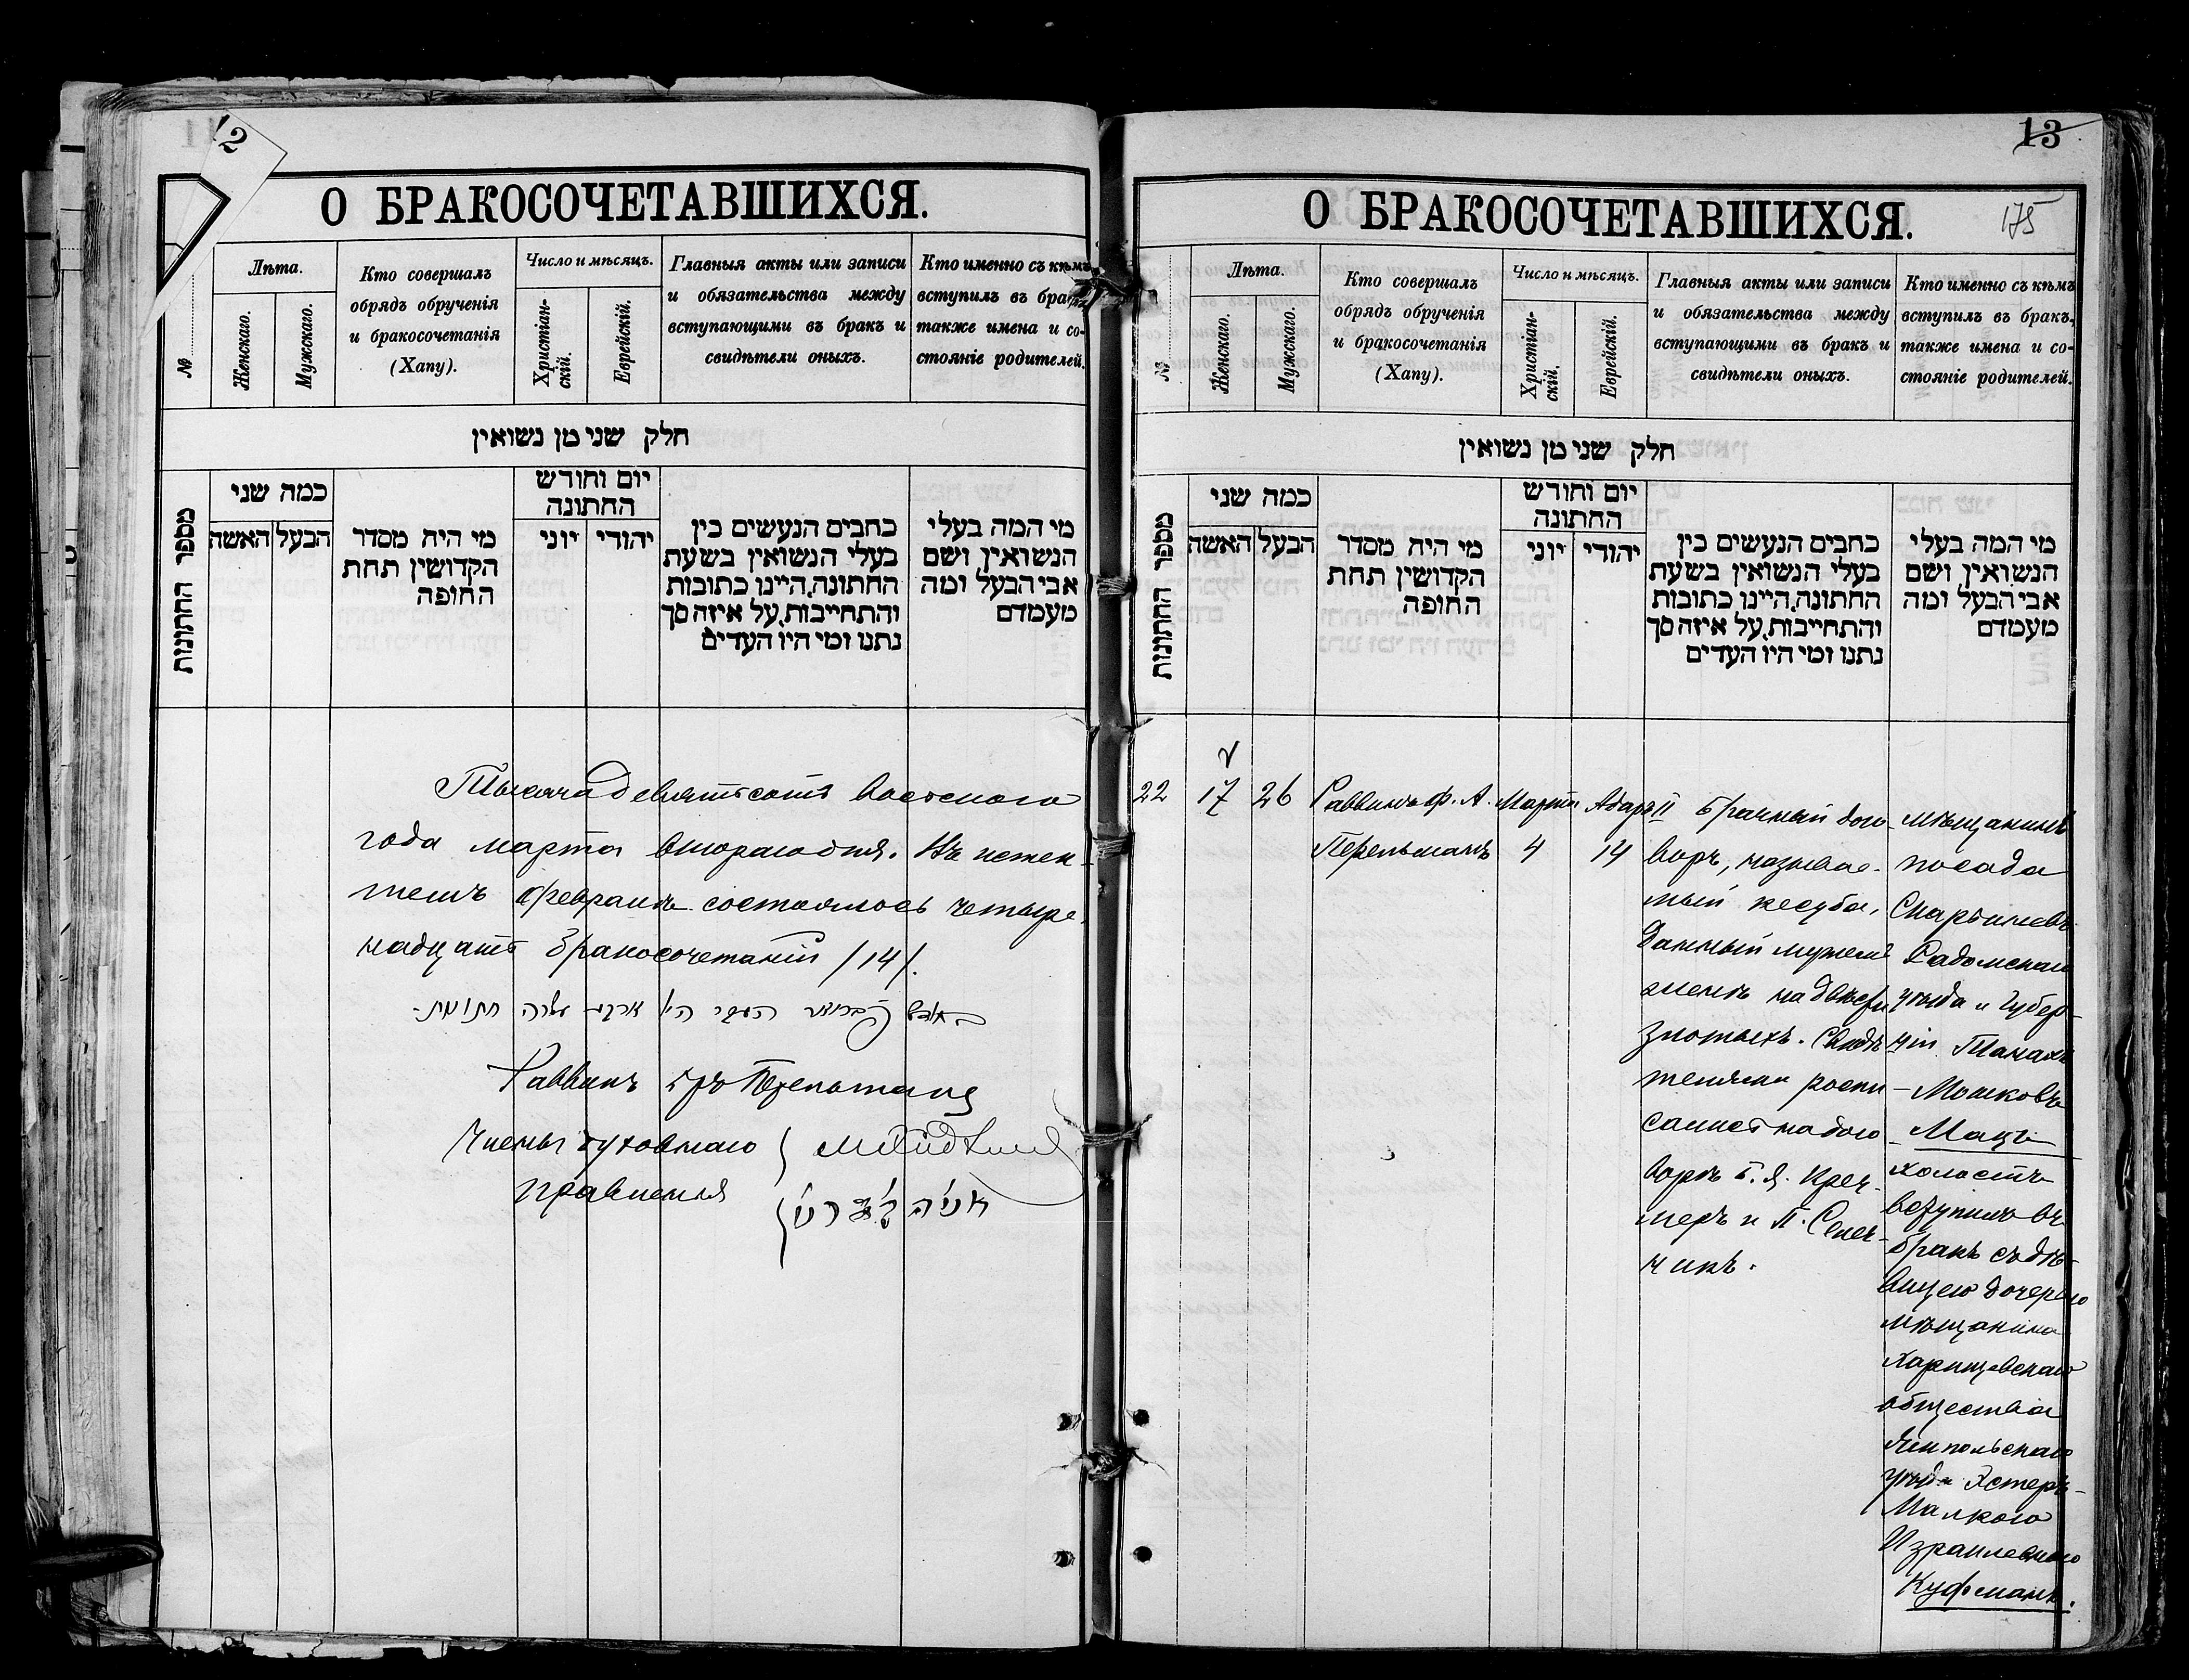 12
О БРАКОСОЧЕТАВШИХСЯ.
№
Лѣта.
Женскаго.
Мужскаго.
Кто совершалъ
обрядъ обрученія
и бракосочетанія
(Хапу).
Число и мѣсяцъ.
Христіан-
скій.
Еврейскій.
Главныя акты или записи
и обязательства между
вступающими въ бракъ и
свидѣтели оныхъ.
Кто именно съ кѣмъ
вступилъ въ бракъ,
также имена и со-
стояніе родителей.
חלק שני מן נשואין
מספר החתונות
כמה שני
הבעל
האשה
מי היה מסדר
הקדושין תחת
החופה
יום וחודש
החתונה
יוני
יהודי
כתבים הנעשים בין
בעלי הנשואין בשעת
החתונה, היינו כתובות
והתחייבות, על איזה סך
נתנו ומי היו העדים
מי המה בעלי
הנשואין, ושם
אבי הבעל ומה
מעמדם
Тысяча девятьсотъ восьмого
года марта второго дня. Въ истек-
шемъ февралѣ состоялось четыре-
надцать бракосочетаній /14/.
חתונות
Раввинъ Перельманъ
Члены духовнаго
правленія
13
175
О БРАКОСОЧЕТАВШИХСЯ.
№
Лѣта.
Женскаго.
Мужскаго.
Кто совершалъ
обрядъ обрученія
и бракосочетанія
(Хапу).
Число и мѣсяцъ.
Христіан-
скій.
Еврейскій.
Главныя акты или записи
и обязательства между
вступающими въ бракъ и
свидѣтели оныхъ.
Кто именно съ кѣмъ
вступилъ въ бракъ,
также имена и со-
стояніе родителей.
חלק שני מן נשואין
מספר החתונות
כמה שני
הבעל
האשה
מי היה מסדר
הקדושין תחת
החופה
יום וחודש
החתונה
יוני
יהודי
כתבים הנעשים בין
בעלי הנשואין בשעת
החתונה, היינו כתובות
והתחייבות, על איזה סך
נתנו ומי היו העדים
מי המה בעלי
הנשואין, ושם
אבי הבעל ומה
מעמדם
22
17
26
Раввинъ Ф. А.
Перельманъ
Марта
4
Адаръ II
14
Брачный дого-
воръ, называе-
мый кесуба,
данный мужемъ
женѣ на двѣсти
злотыхъ. Свидѣ-
телями роспи-
салисъ на дого-
ворѣ Б. Я. Креч-
меръ и П. Сенен-
чикъ.
Мѣщанинъ
посада
Радомскаго
уѣзда и Губер-
ніи Танахъ
Мошковъ
Мацъ
холостъ
вступилъ въ
бракъ съ дѣ-
вицею дочерью
мѣщанина
общества
Ямпольскаго
уѣзда Эстеръ-
Малкою
Израилевною
Куфманъ.